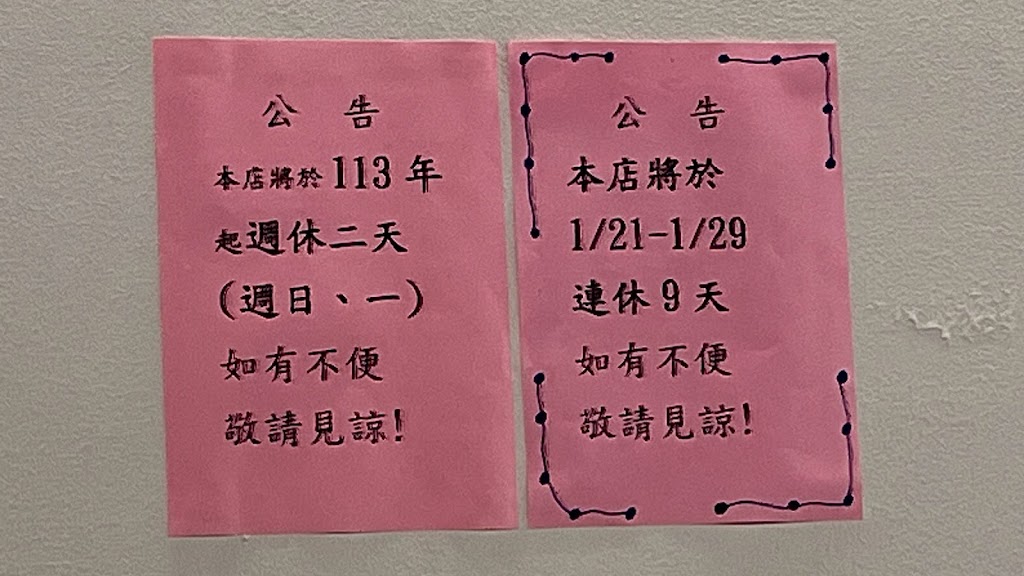 公告
本店將於113年
起週休二天
(週日、一)
如有不便
敬請見諒!
公告
本店將於
1/21-1/29
連休9天
如有不便
敬請見諒!